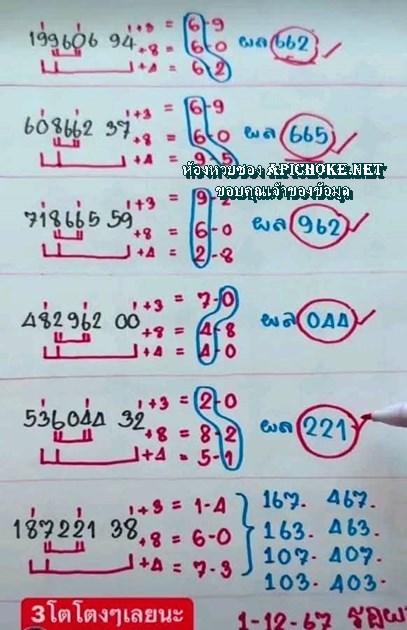 199606 94 +3 = 6-9
+8 = 6-0 ผล 662
+4 = 6-2
608662 37 +3 = 6-9
+8 = 6-0 ผล 665
+4 = 9-5
ห้องหวยซอง APICHOKE.NET
ขอบคุณเจ้าของข้อมูล
718665 59 +3 =
+8 = 6-0 ผล 962
+4 = 2-8
482962 00 +3 = 7-0
+8 = 4-8 ผล 044
+4 = 4-0
536044 32 +3 = 2-0
+8 = 8-2 ผล 221
+4 = 5-1
187221 38 +3 = 1-4
+8 = 6-0
+4 = 7-3
167. 467.
163. 463.
107. 407.
103. 403.
3โตโตงๆเลยนะ
1-12-67